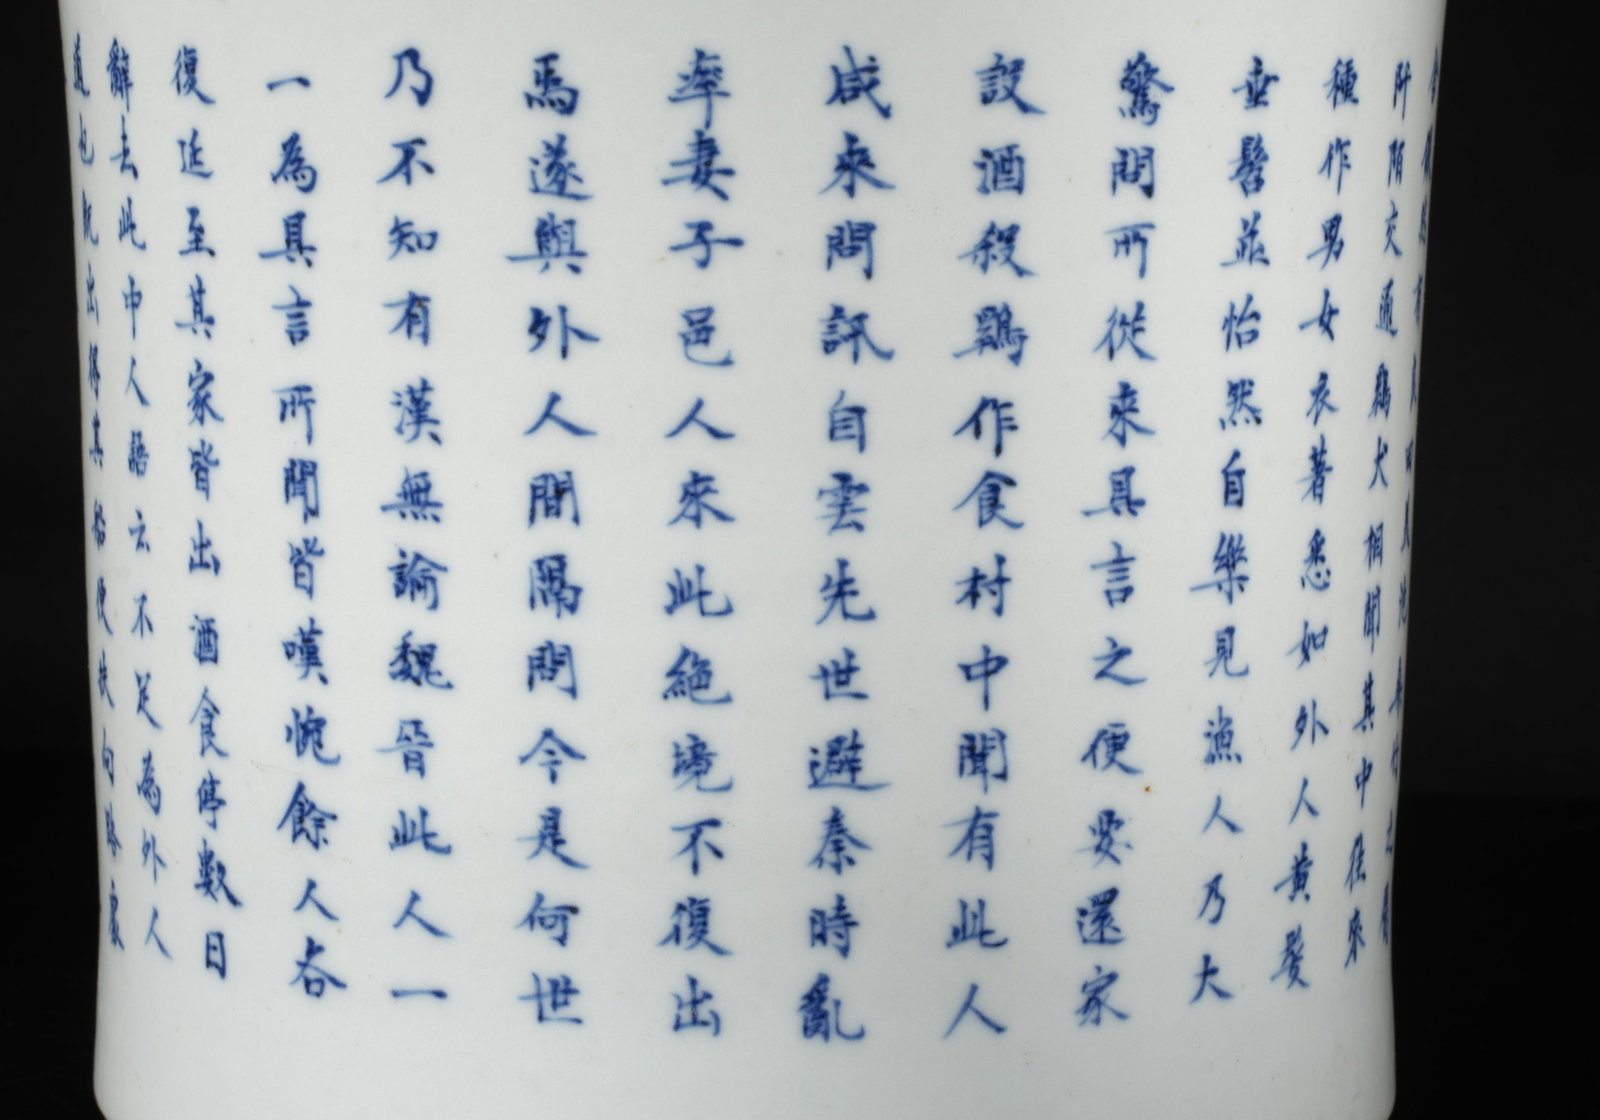 舍儼然有良田美池桑竹之屬
阡陌交通鷄犬相聞其中徃來
種作男女衣著悉如外人黄髮
垂髫並怡然自樂見漁人乃大
驚問所從來具言之便要還家
設酒殺鷄作食村中聞有此人
咸來問訊自雲先世避秦時亂
率妻子邑人來此絕境不復出
焉遂與外人間隔問今是何世
乃不知有漢無論魏晉此人一
一為具言所聞皆嘆惋餘人各
復延至其家皆出酒食停數日
辭去此中人語云不足為外人
道也既出得其船便扶向路處